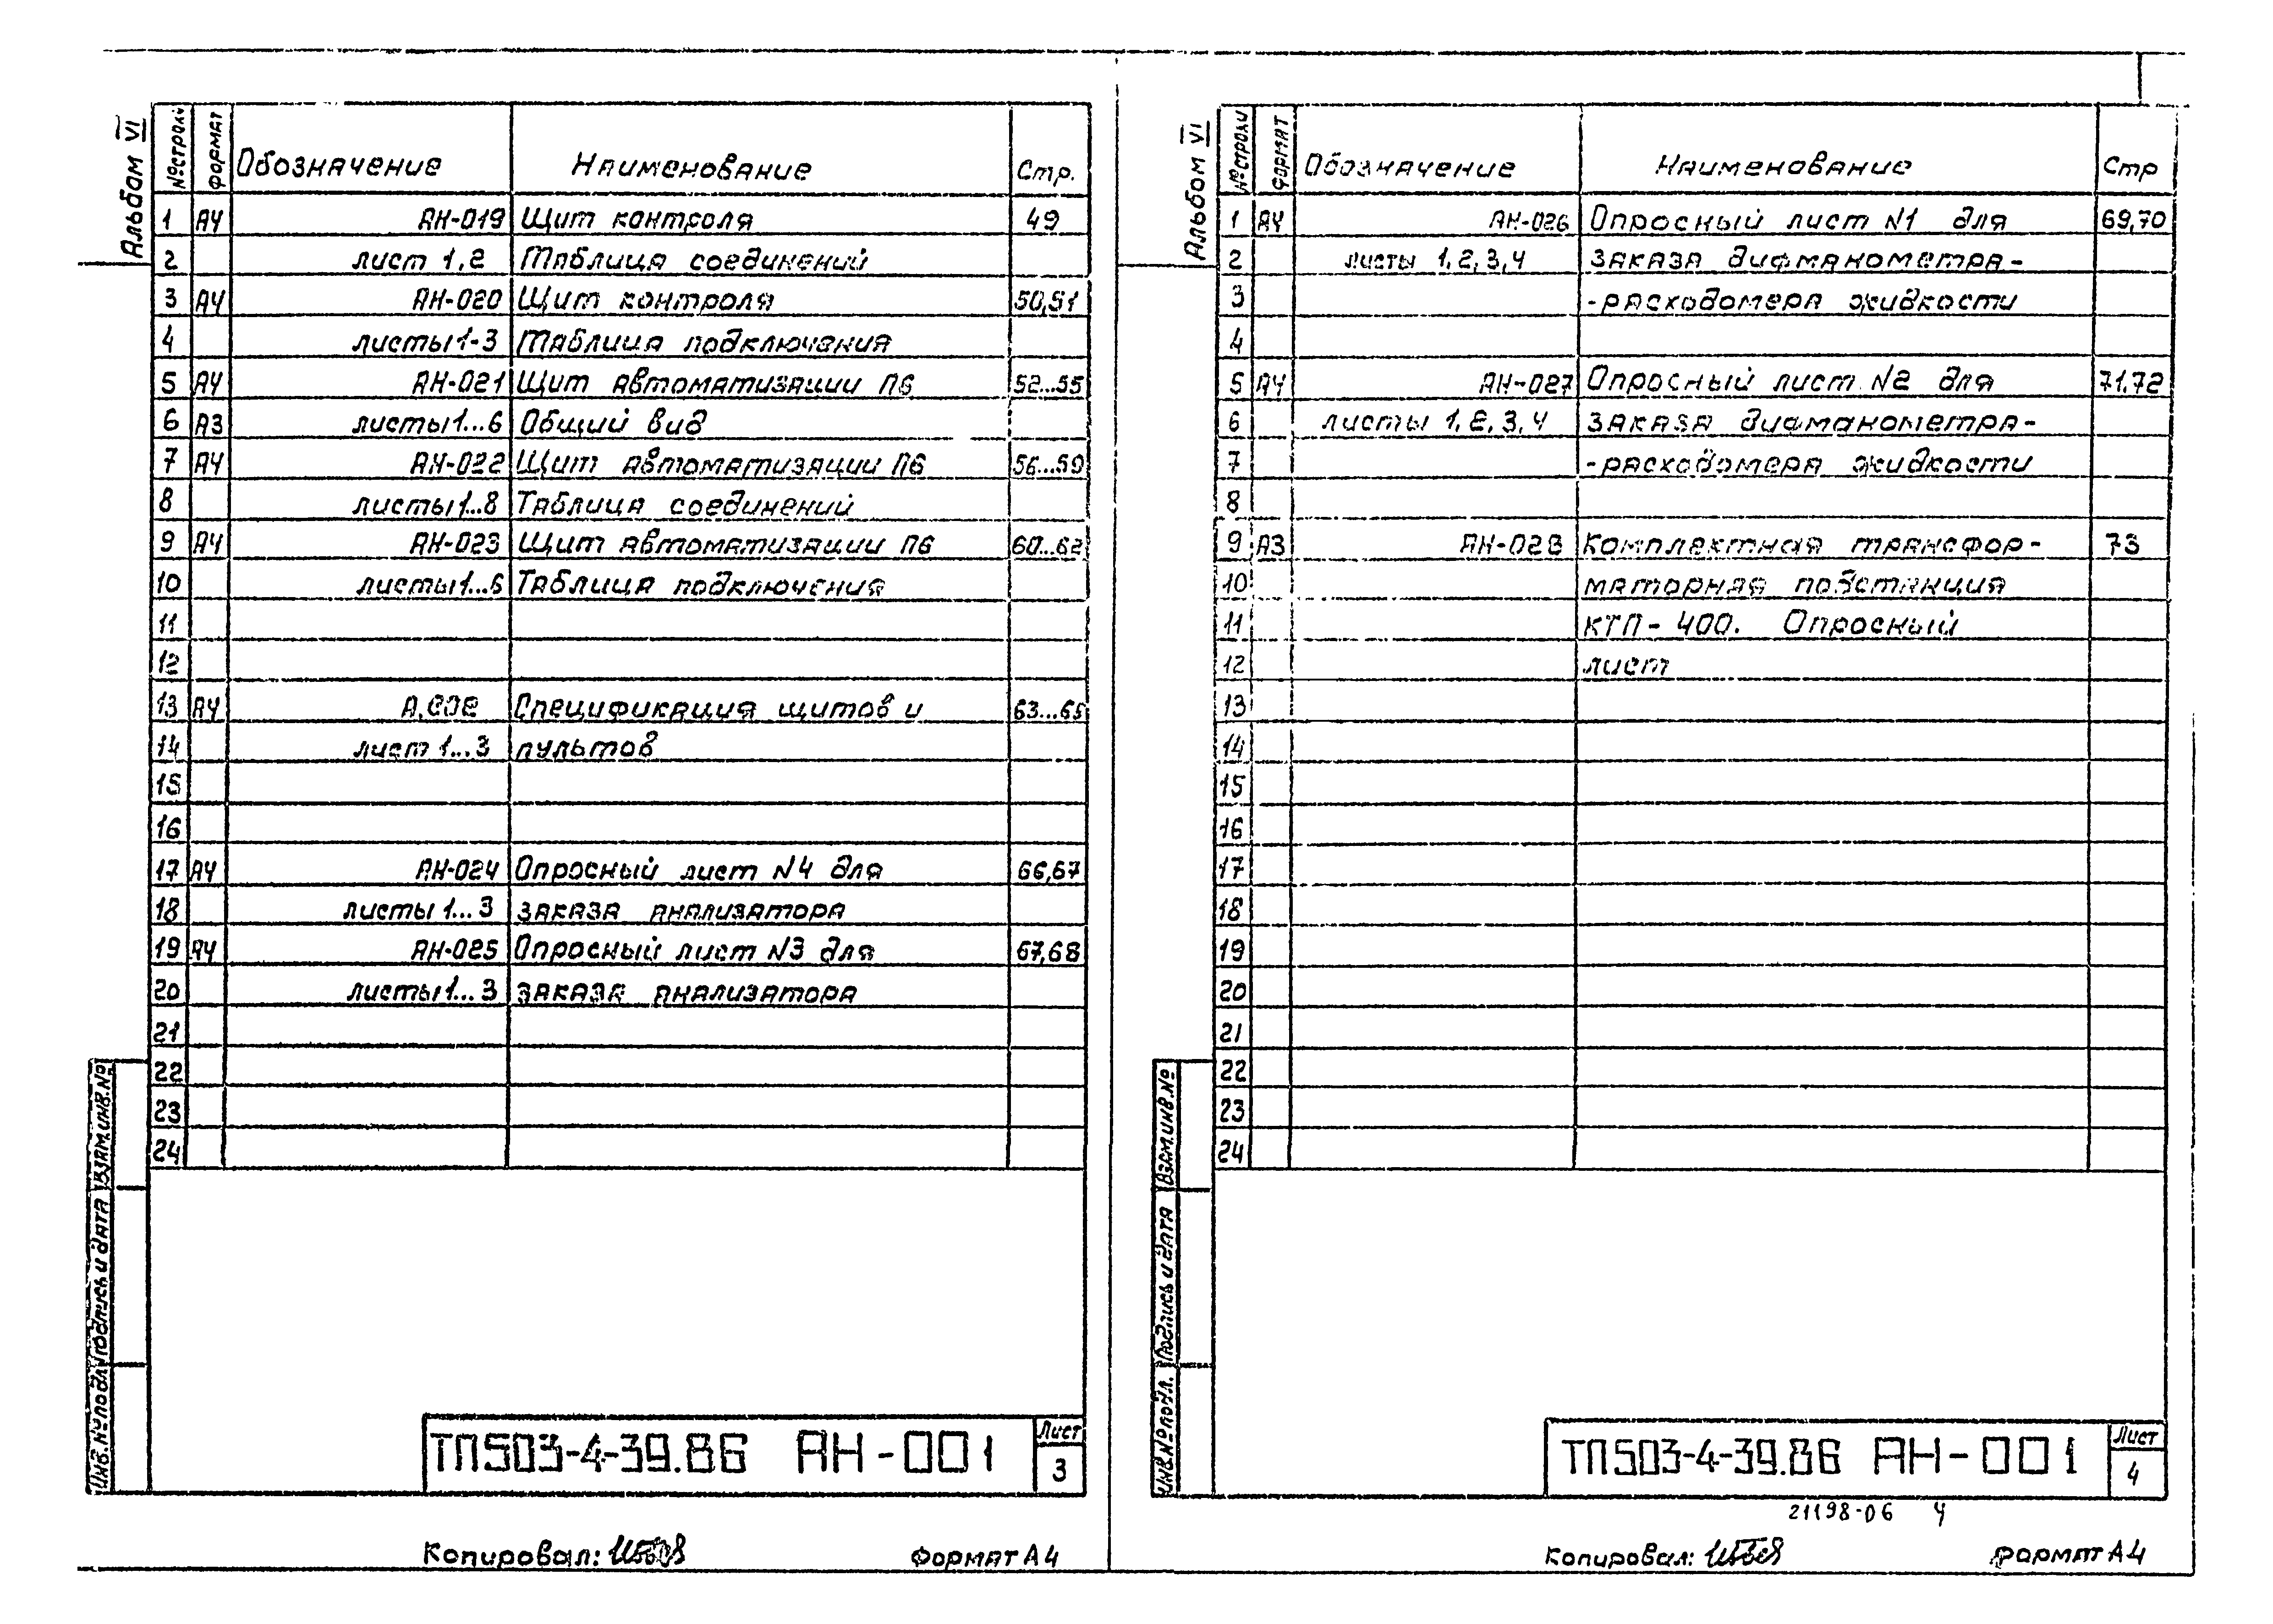 Альбом VI
№ строки Формат Обозначение Наименование Стр.
1 А4 АН-019 Щит контроля 49
2 лист 1,2 Таблица соединений
3 А4 АН-020 Щит контроля 50,51
4 листы 1-3 Таблица подключения
5 А4 АН-021 Щит автоматизации П6 52...55
6 А3 листы 1...6 Общий вид
7 А4 АН-022 Щит автоматизации П6 56...59
8 листы 1...8 Таблица соединений
9 А4 АН-023 Щит автоматизации П6 60...62
10 листы 1...6 Таблица подключения
11
12
13 А4 Спецификация щитов и 63...65
14 лист 1...3 пультов
15
16
17 А4 АН-024 Опросный лист N4 для 66,67
18 листы 1...3 заказа анализатора
19 А4 АН-025 Опросный лист N3 для 67,68
20 листы 1...3 заказа анализатора
21
22
23
24
Инв. № подл. Подпись и дата Взам. инв. №
ТП503-4-39.86 АН-001 Лист 3
Копировал: Формат А4
Альбом VI
№ строки Формат Обозначение Наименование Стр
1 А4 АН-026 Опросный лист N1 для 69,70
2 листы 1,2,3,4 заказа дифманометра-
3 -расходомера жидкости
4
5 А4 АН-027 Опросный лист N2 для 71,72
6 листы 1,2,3,4 заказа дифманометра-
7 -расходомера жидкости
8
9 А3 АН-028 Комплектная трансфор- 73
10 маторная подстанция
11 КТП-400. Опросный
12 лист
13
14
15
16
17
18
19
20
21
22
23
24
Инв. № подл. Подпись и дата Взам. инв. №
ТП503-4-39.86 АН-001 Лист 4
21198-06 4
Копировал: Формат А4